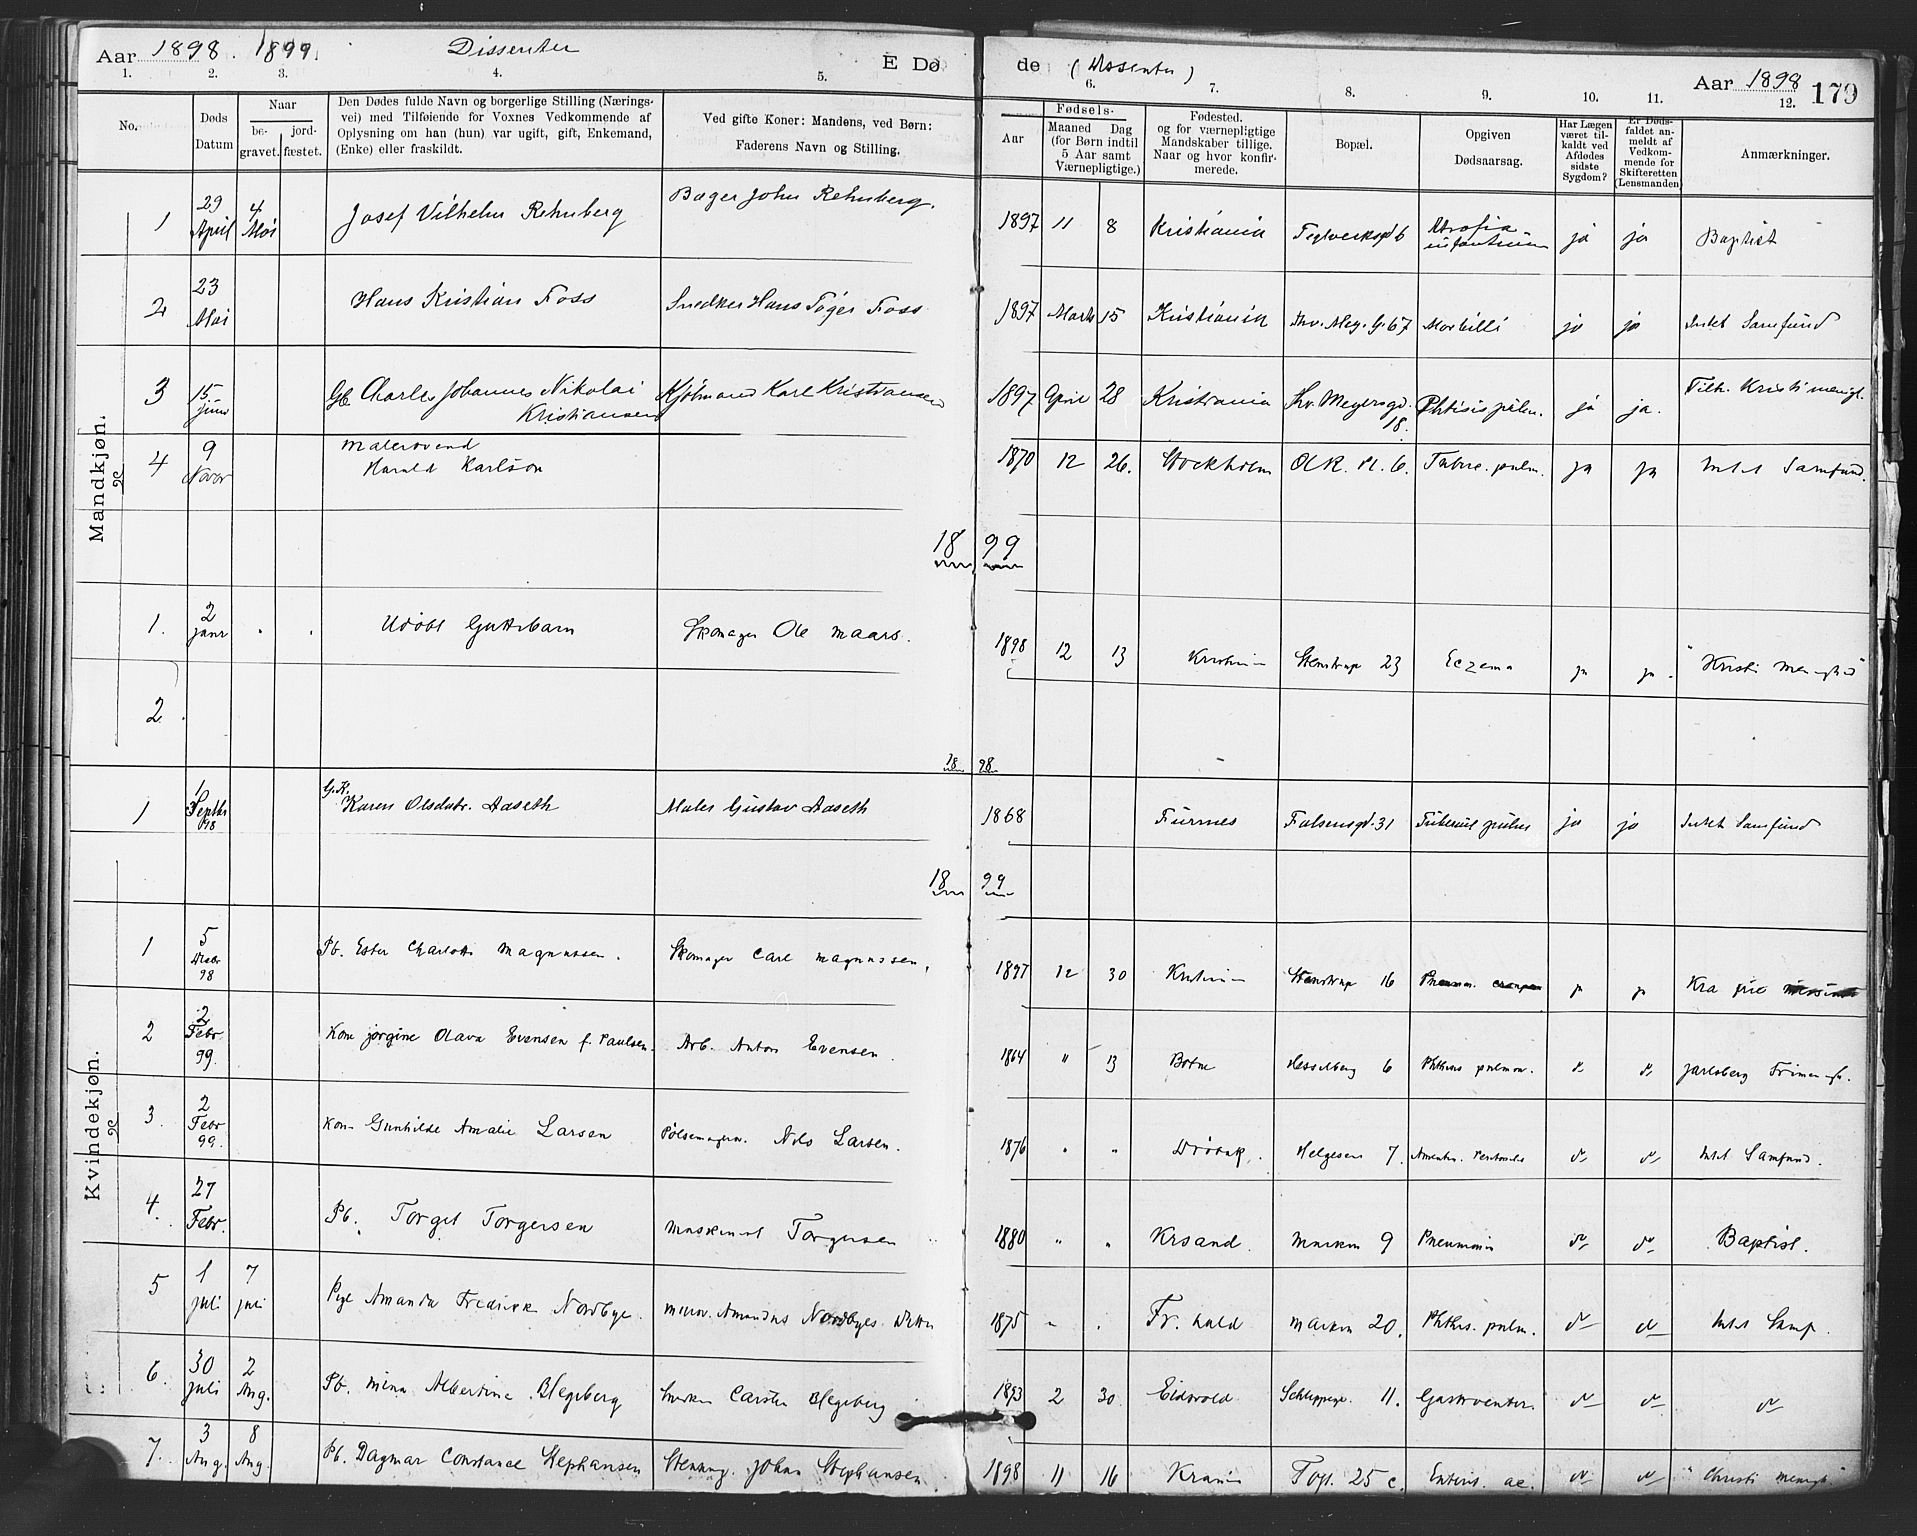 Aar 1898. 1899. Dissenter E Dø de (Dissenter) Aar 1898 179
1. 2. 3. 4. 5. 6. 7. 8. 9. 10. 11. 12.
No.
Døds Datum
Naar
be-gravet. jord-fæstet.
Den Dødes fulde Navn og borgerlige Stilling (Nærings-
vei) med Tilføiende for Voxnes Vedkommende af
Oplysning om han (hun) var ugift, gift, Enkemand,
(Enke) eller fraskildt.
Ved gifte Koner: Mandens, ved Børn:
Faderens Navn og Stilling.
Fødsels-
Aar
Maaned Dag
(for Børn indtil
5 Aar samt
Værnepligtige.)
Fødested.
og for værnepligtige
Mandskaber tillige.
Naar og hvor konfir-
merede.
Bopæl.
Opgiven
Dødsaarsag.
Har Lægen
været til-
kaldt ved
Afdødes
sidste
Sygdom?
Er Døds-
faldet an-
meldt af
Vedkom-
mende for
Skifteretten
(Lensmanden)
Anmærkninger.
Mandkjøn.
1 29 April 4 Mai Josef Vilhelm Rehnberg Bager John Rehnberg. 1897 11 8 Kristiania Teglverksgd 6 Atrofia infantum ja ja Baptist
2 23 Mai Hans Kristian Foss Snedker Hans Töger Foss 1897 Marts 15 Kristiania Thv. Mey. G. 67 Morbilli ja ja Intet Samfund
3 15 Juni Gb Charles Johannes Nikolai Kristiansen Kjøbmand Karl Kristiansen 1897 April 28 Kristiania Thv. Meyersgd. 18. Phtisis pulm. ja ja. Tilh. Kristi menigh.
4 9 Novbr Malersvend Harald Karlson 1870 12 26. Stockholm Ol R. Pl. 6. Tuberc. pulm. ja ja Intet Samfund.
18 99
1. 2 Janr Udøbt Guttebarn Skomager Ole Maars. 1898 12 13 Kristiania Stenstrupg 23 Eczema ja ja. "Kristi Menighed"
2.
18 98
1 1 Septbr 98 G.K. Karen Olsdatr. Aaseth Maler Gustav Aaseth 1868 Furnes Falsensgd. 31 Tubercul pulm ja ja Intet Samfund
18 99
Kvindekjøn.
1 5 Decbr 98 Pb. Ester Charlotte Magnussen. Skomager Carl Magnussen, 1897 12 30 Kristiania Stenstrupg 16 Pneumon. crouposa ja ja Kra frie
2 2 Febr 99. Kone Jørgine Olava Evensen f. Paulsen. Arb. Anton Evensen. 1864 " 13 Botne Hesselberg 6 Phthisis pulmon. do do Jarlsberg Frimenigh.
3. 2 Febr 99. Kone Gunhilde Amalie Larsen Pølsemager. Nils Larsen. 1876 " " Drøbak. Helgesens 7. Peritonitis do do Intet Samfund.
4. 27 Febr. Pb. Torget Torgersen Maskinist Torgersen 1880 " " Krsand. Marken 9 Pneumonia do do Baptist.
5 1 Juli 7 Juli Pige Amanda Fredrikke Nordbye. Murer Amandus Nordbyes Datter 1875 " " Fr. hald Marken 20. Phthis. pulm. do do Intet Samf.
6. 30 Juli 2 Aug. Pb. Mina Albertine Blegeberg Snekker Carsten Blegeberg 1893 2 30. Eidsvold Schleppegr. 11. Gastroenter. do do do
7. 3 Aug. 8 Aug. Pb. Dagmar Constance Stephansen Stenhug. Johan Stephansen 1898 11 16 Krania Toft. 25 c. Enterit. ac. do do "Christi Menigh."